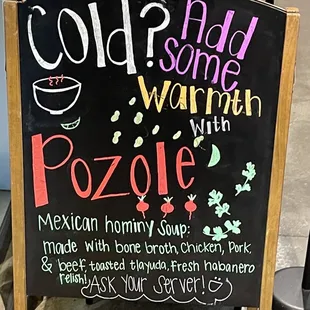 Cold? Add
some
Warmth
with
Pozole
Mexican hominy Soup:
made with bone broth, Chicken, Pork,
& beef, toasted tlayuda, fresh habanero
relish!
Ask your Server!